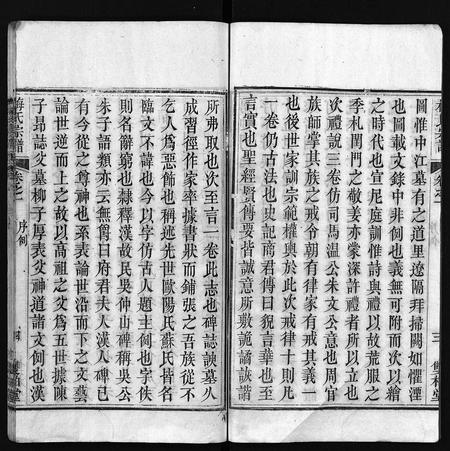 圖惟中江墓有之道里遼隔拜掃闊如懼湮
也圖載文錄中非例也義無可附而次以例
之時代也宣尼庭訓惟詩與禮以故荒服之
季札閔門之敬姜亦蒙深許禮者所以立也
次禮說三卷仿司馬温公朱文公意也周官
族師掌其族之戒令朝有律家有戒其義一
也後世家訓宗範權輿於此次戒律十則凡
一卷仍古法也史記商君傳曰貌言華也至
言實也聖經賢傳要皆誠意所敷詭譎詼諧
所弗取也次至言一卷此志也碑誌諛墓人
成習徑作家率據書狀而鋪張之吾族從不
乞人爲惡飾也稱述先世歐陽氏蘇氏皆名
臨文不諱也今以字仿古人題主例也字佚
則名辭窮也隸釋漢故民吳仲山碑稱吳公
朱子語類亦云無爵曰府君夫人漢人碑已
有今從之尊神也系表論世沿而下之文藝
論世逆而上之故以高祖之父爲五世據陳
子昂誌父墓柳子厚表父神道諸文例也漢
梅氏宗譜
卷之一
序例
四
三